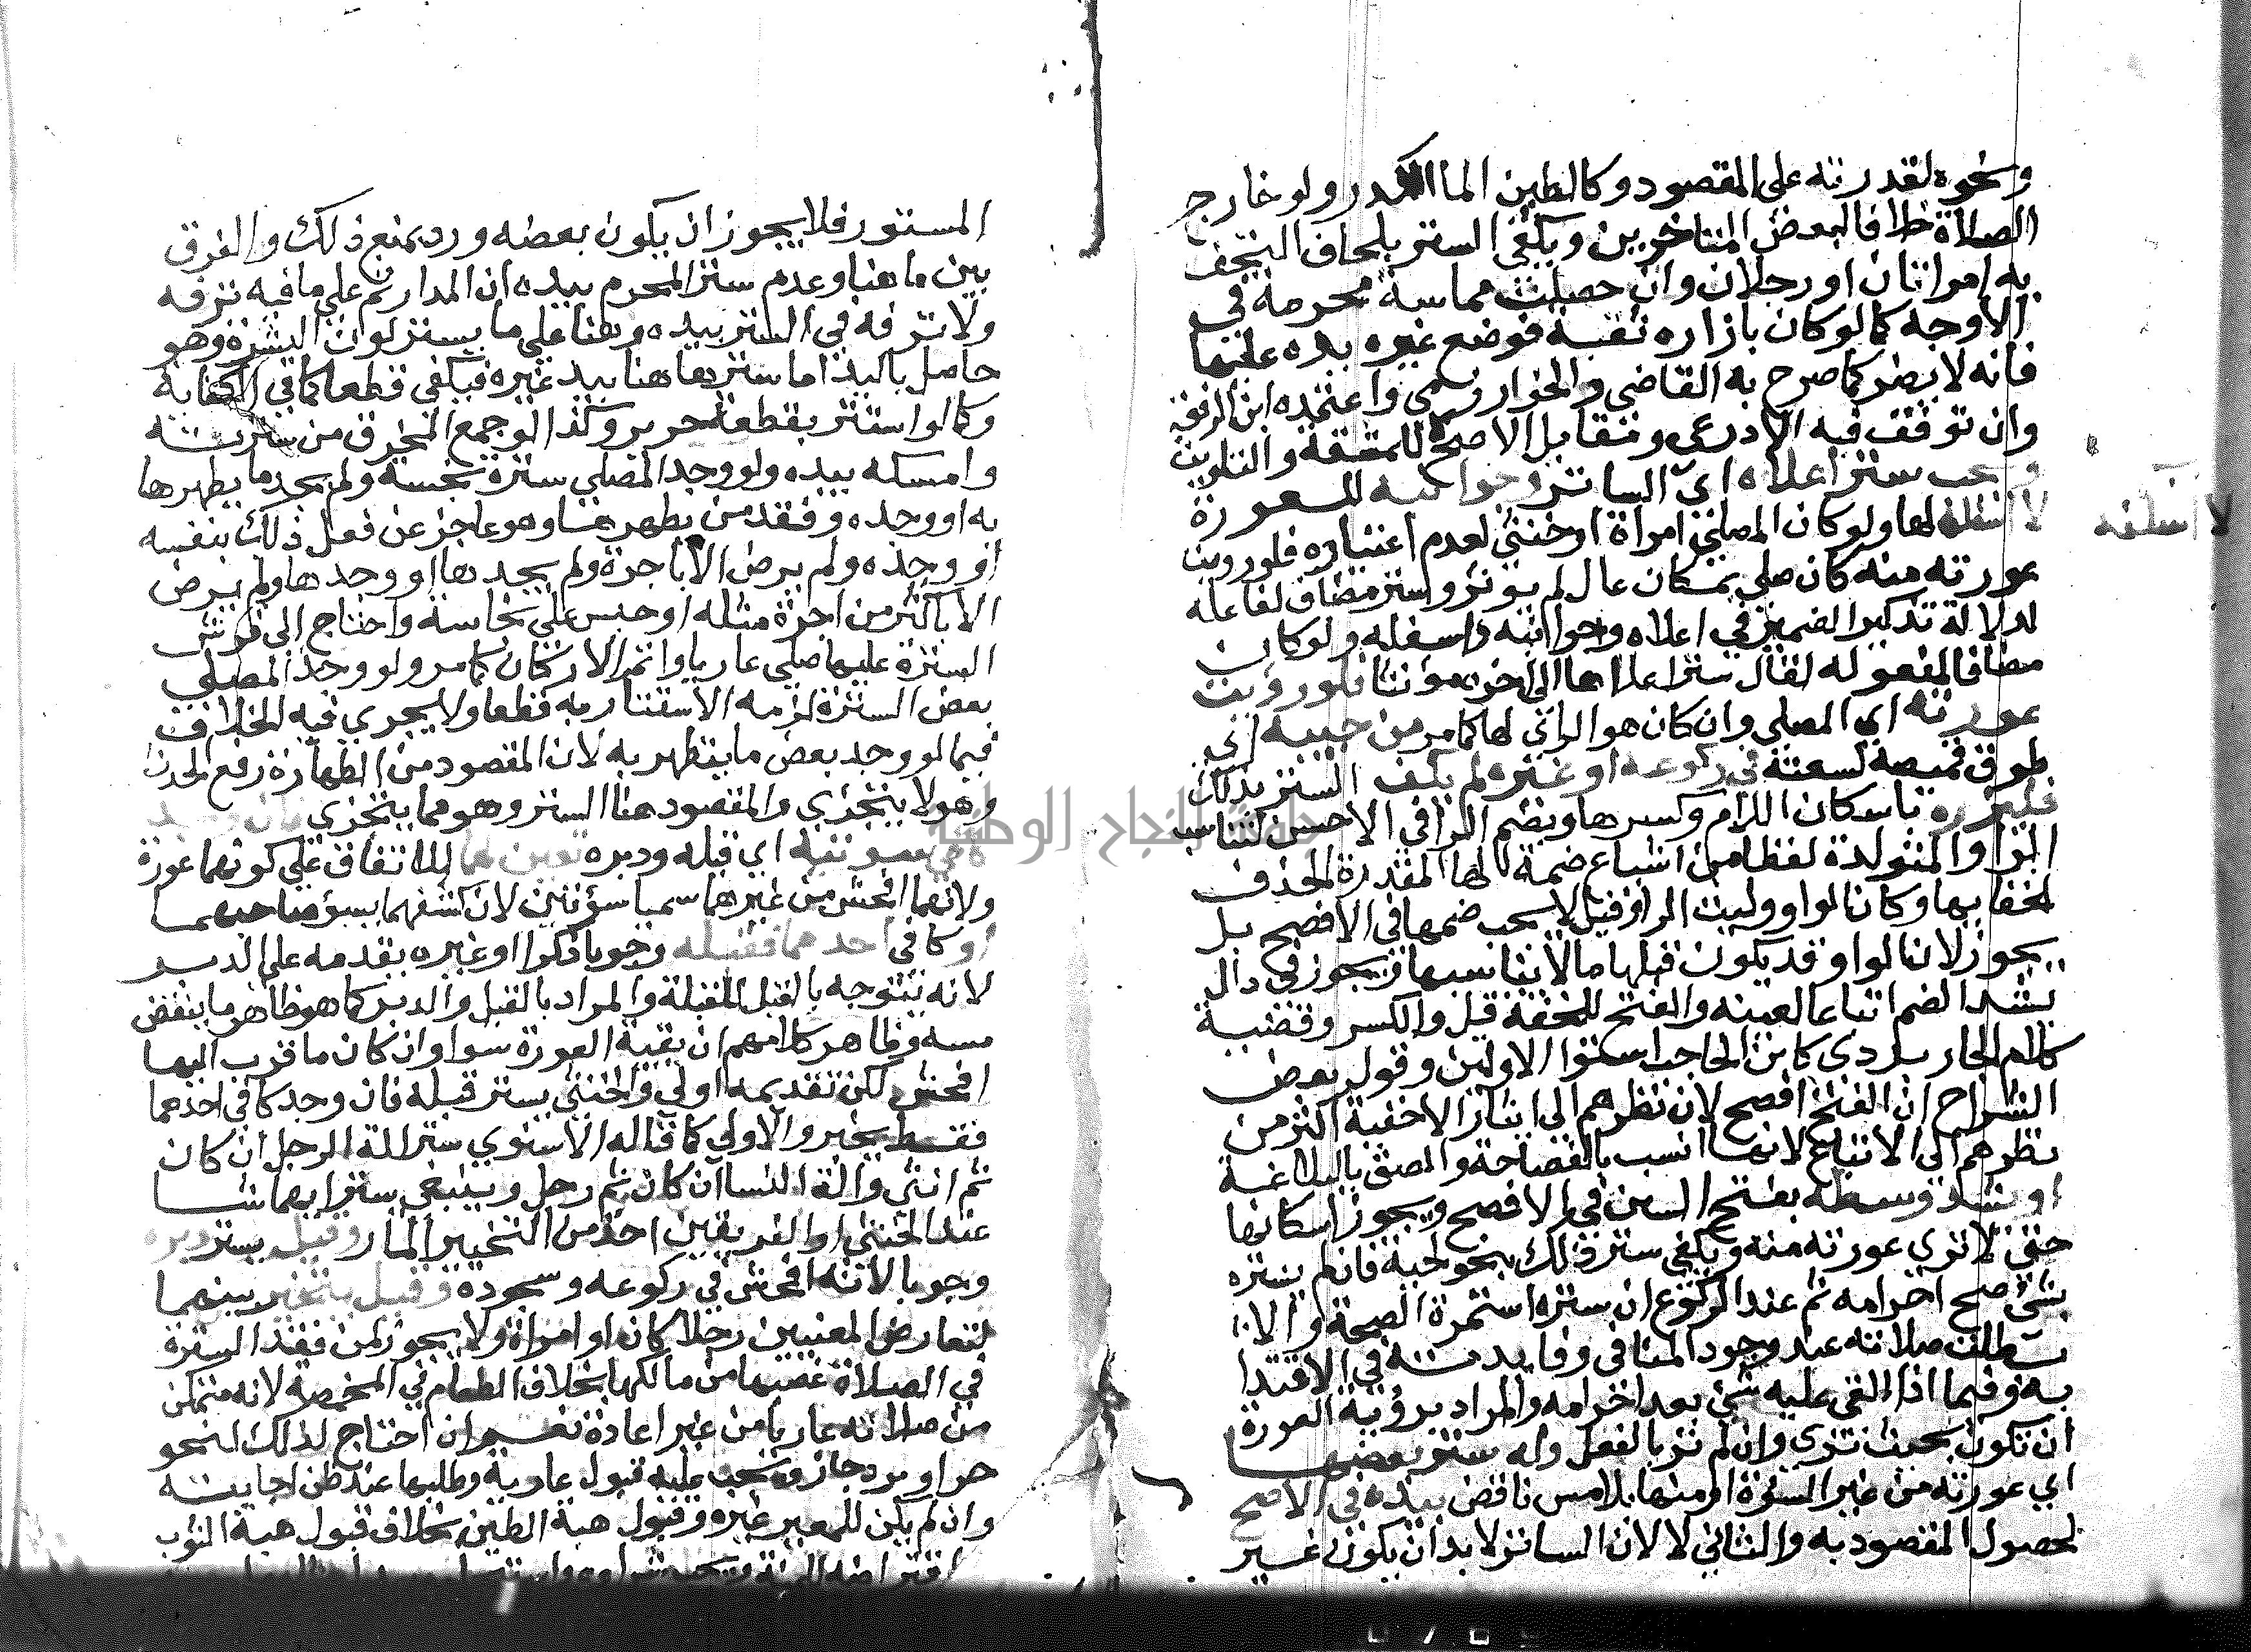 ونحوه لقدرته على المقصود وكالطين الما الكدر ولو خارج
الصلاة خلافا لبعض المتاخرين ويكفي الستر بلحاف التحف
به امراتان او رجلان وان حصلت مماسة محرمة في
الاوجه كما لو كان بازاره ثقبة فوضع غيره يده عليها
فانه لا يضر كما صرح به القاضي والخوارزمي واعتمده ابن الرفعة
وان توقف فيه الاذرعي ومقابل الاصح للمشقة والتلويث
ويجب ستر اعلاه اي الساتر وجوانبه للعورة
لا اسفله لها ولو كان المصلي امراة او خنثي لعدم اعتياده فلو رويت
لا اسفله
عورته منه كان صلي بمكان عال لم يوثر وستر مضاف لفاعله
لدلالة تذكير الضمير في اعلاه وجوانبه واسفله ولو كان
مضافا لمفعوله لقال ستر اعلاها الى اخره مونثا فلو رويت
عورته اي المصلي وان كان هو الرائي لها كما مر من جيبه اي
طوق قميصه لسعته في ركوعه او غيره لم يكف الستر بذلك
فليزره باسكان اللام وكسرها وبضم الرا في الاحسن لتناسب
الواو المتولدة لفظا من اشباع ضمة الها المقدرة الحذف
لخفايها وكان الواو وليت الرا وقيل لا يجب ضمها في الافصح بل
يجوز لان الواو قد يكون قبلها ما لا يناسبها ويجوز في دال
يشد الضم اتباعا لعينه والفتح للخفة قيل والكسر وقضية
كلام الجاربردي كابن الحاجب استوا الاولين وقول بعض
الشراح ان الفتح افصح لان نظرهم الى ايثار الاخفية اكثر من
نظرهم الى الاتباع لانها انسب بالفصاحة والصق بالبلاغة
او يشد وسطه بفتح السين في الافصح ويجوز اسكانها
حتى لا ترى عورته منه ويكفي ستر ذلك بنحو لحية فان لم يستره
بشئ صح احرامه ثم عند الركوع ان ستره استمرت الصحة والا
بطلت صلاته عند وجود المنافي وفايدته في الاقتدا
به وفيما اذا القي عليه شئ بعد احرامه والمراد بروية العورة
ان تكون بحيث ترى وان لم تر بالفعل وله ستر بعضها
اي عورته من غير السترة او منها بلا مس ناقض بيده في الاصح
لحصول المقصود به والثاني لا لان الساتر لا بد ان يكون غير
المستور فلا يجوز ان يكون بعضه ورد بمنع ذلك والفرق
بين ما هنا وعدم ستر المحرم بيده ان المدار ثم على ما فيه ترفه
ولا ترفه في الستر بيده وهنا على ما يستر لون البشرة وهو
حاصل باليد اما سترها هنا بيد غيره فيكفي قطعا كما في الكفاية
وكما لو استتر بقطعة حرير وكذا لو جمع المخرق من سترته
وامسكه بيده ولو وجد المصلي سترة نجسة ولم يجد ما يطهرها
به او وجده وفقد من يطهرها وهو عاجز عن فعل ذلك بنفسه
او وجده ولم يرض الا باجرة ولم يجدها او وجدها ولم يرض
الا باكثر من اجرة مثله او حبس على نجاسة واحتاج الى فرش
السترة عليها صلي عاريا واتم الاركان كما مر ولو وجد المصلي
بعض السترة لزمه الاستتار به قطعا ولا يجري فيه الخلاف
فيما لو وجد بعض ما يتطهر به لان المقصود من الطهارة رفع الحدث
وهو لا يتجزي والمقصود هنا الستر وهو مما يتجزي فان وجد
كافي سوءتيه اي قبله ودبره تعين لهما للاتفاق على كونهما عورة
ولانهما افحش من غيرهما سميا سؤتين لان كشفهما يسؤ صاحبهما
او كافي احدهما فقبله وجوبا ذكرا او غيره يقدمه على الدبر
لانه يتوجه بالقبل للقبلة والمراد بالقبل والدبر كما هو ظاهر ما ينقض
مسه وظاهر كلامهم ان بقية العورة سوا وان كان ما قرب اليهما
افحش لكن تقديمه اولي والخنثي يستر قبله فان وجد كافي احدهما
فقط تخير والاولي كما قاله الاسنوي ستر الة الرجل ان كان
ثم انثي والة النسا ان كان ثم رجل وينبغي ستر ايهما شا
عند الخنثي او الفريقين اخذ من التخيير المار وقيل يستر دبره
وجوبا لانه افحش في ركوعه وسجوده وقيل يتخير بينهما
لتعارض المعنيين رجلا كان او امراة ولا يجوز لمن فقد السترة
في الصلاة غصبها من مالكها بخلاف الطعام في المخمصة لانه متمكن
من صلاته عاريا من غير اعادة نعم ان احتاج لذلك لنحو
حر او برد جاز ويجب عليه قبول عارية وطلبها عند ظن اجابته
وان لم يكن للمعير غيره وقبول هبة الطين بخلاف قبول هبة الثوب
جامعة النجاح الوطنية